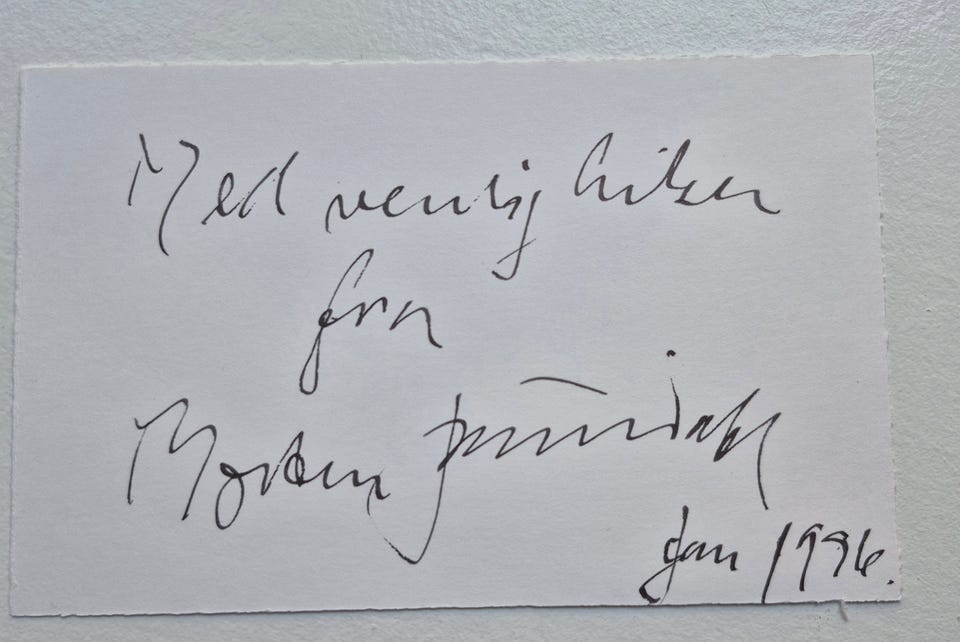 Med venlig hilsen
fra
Morten
Jan 1996.